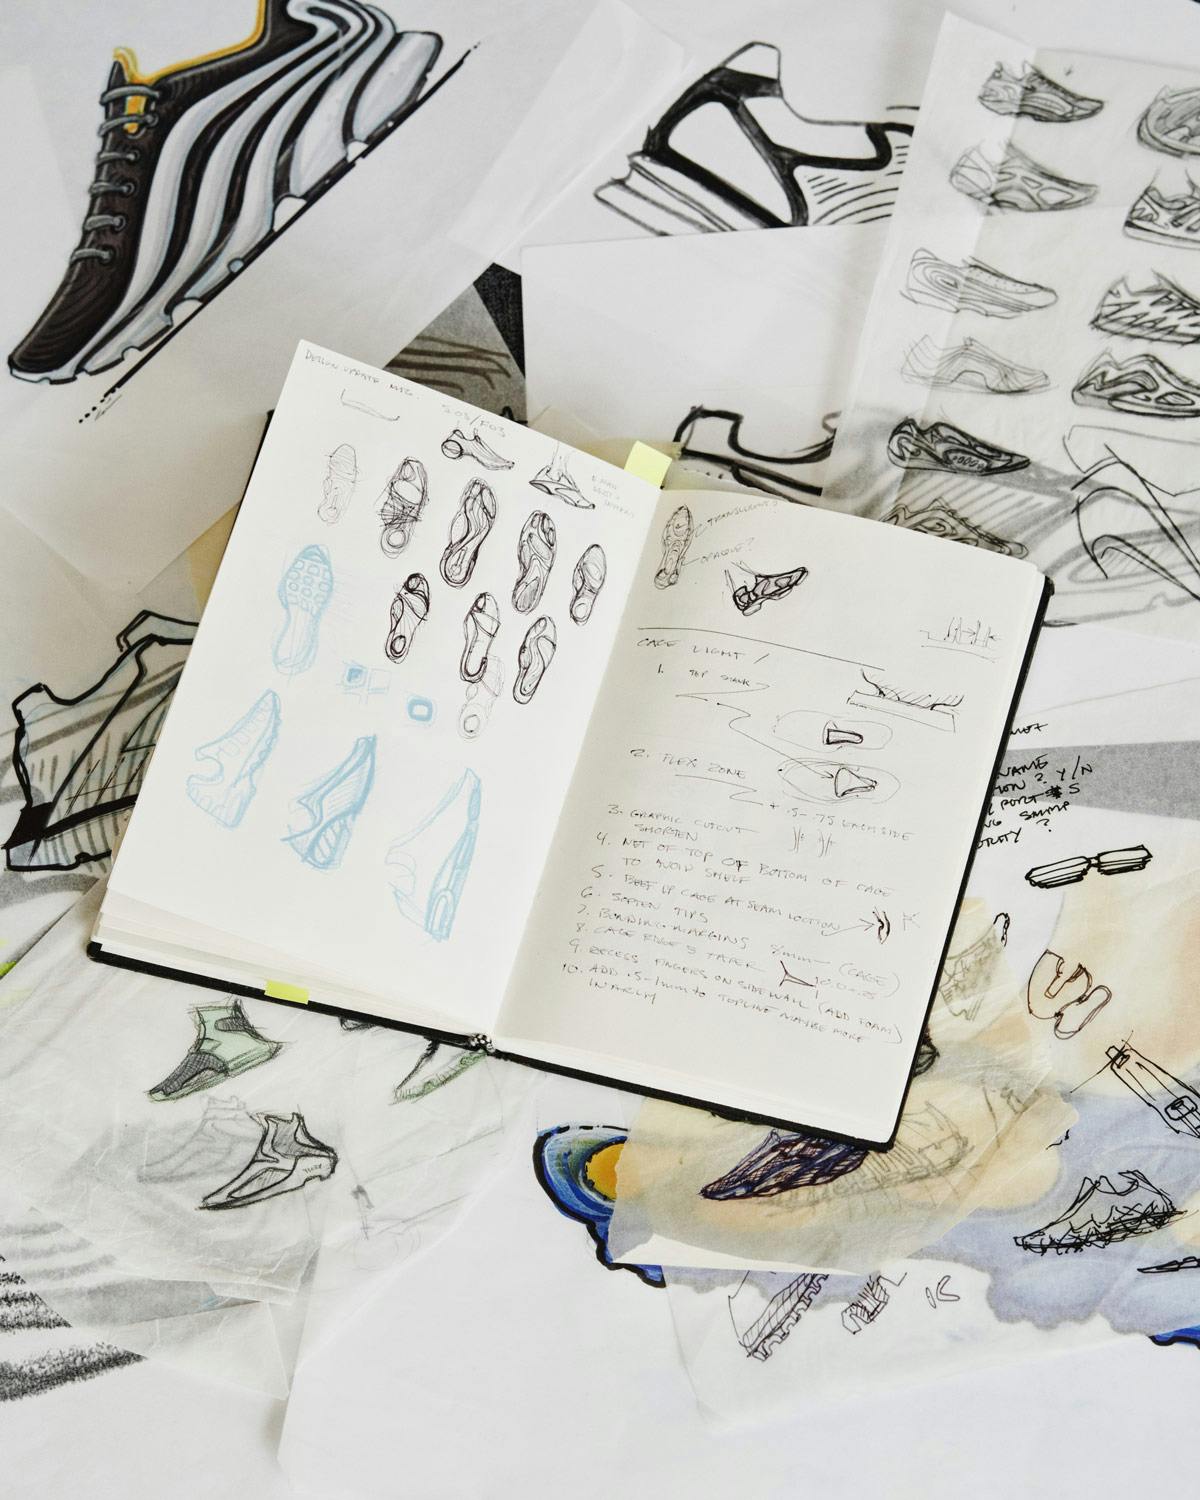 DESIGN UPDATE MTG.
S03/F03
TRANSLUCENT?
OPAQUE?
CAGE LIGHT /
1. TOP
2. FLEX ZONE
+ .5-.75 EACH SIDE
3. GRAPHIC CUTOUT
SHORTEN
4. NET OF TOP OF BOTTOM OF CAGE
TO AVOID SHELF
5. BEEF UP CAGE AT SEAM LOCTION
6. SOFTEN TIPS
7. BONDING MARGINS
(CAGE)
8. CAGE EDGE'S TAPER
9. RECESS FINGERS ON SIDEWALL (ADD FOAM)
10. ADD .5-1mm to TOPLINE MAYBE MORE
NAME
? Y/N
PORT # S
?